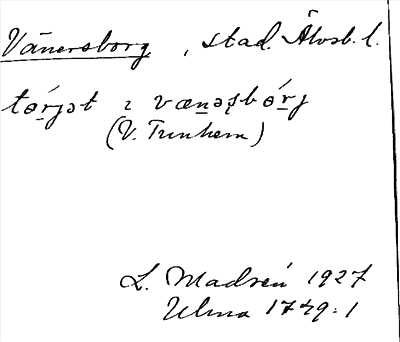 Vänersborg, stad. Älvsb. l.
tørjət ı vænəʂbórj
(V. Tunhem)
L. Madsén 1927
Ulma 1749:1